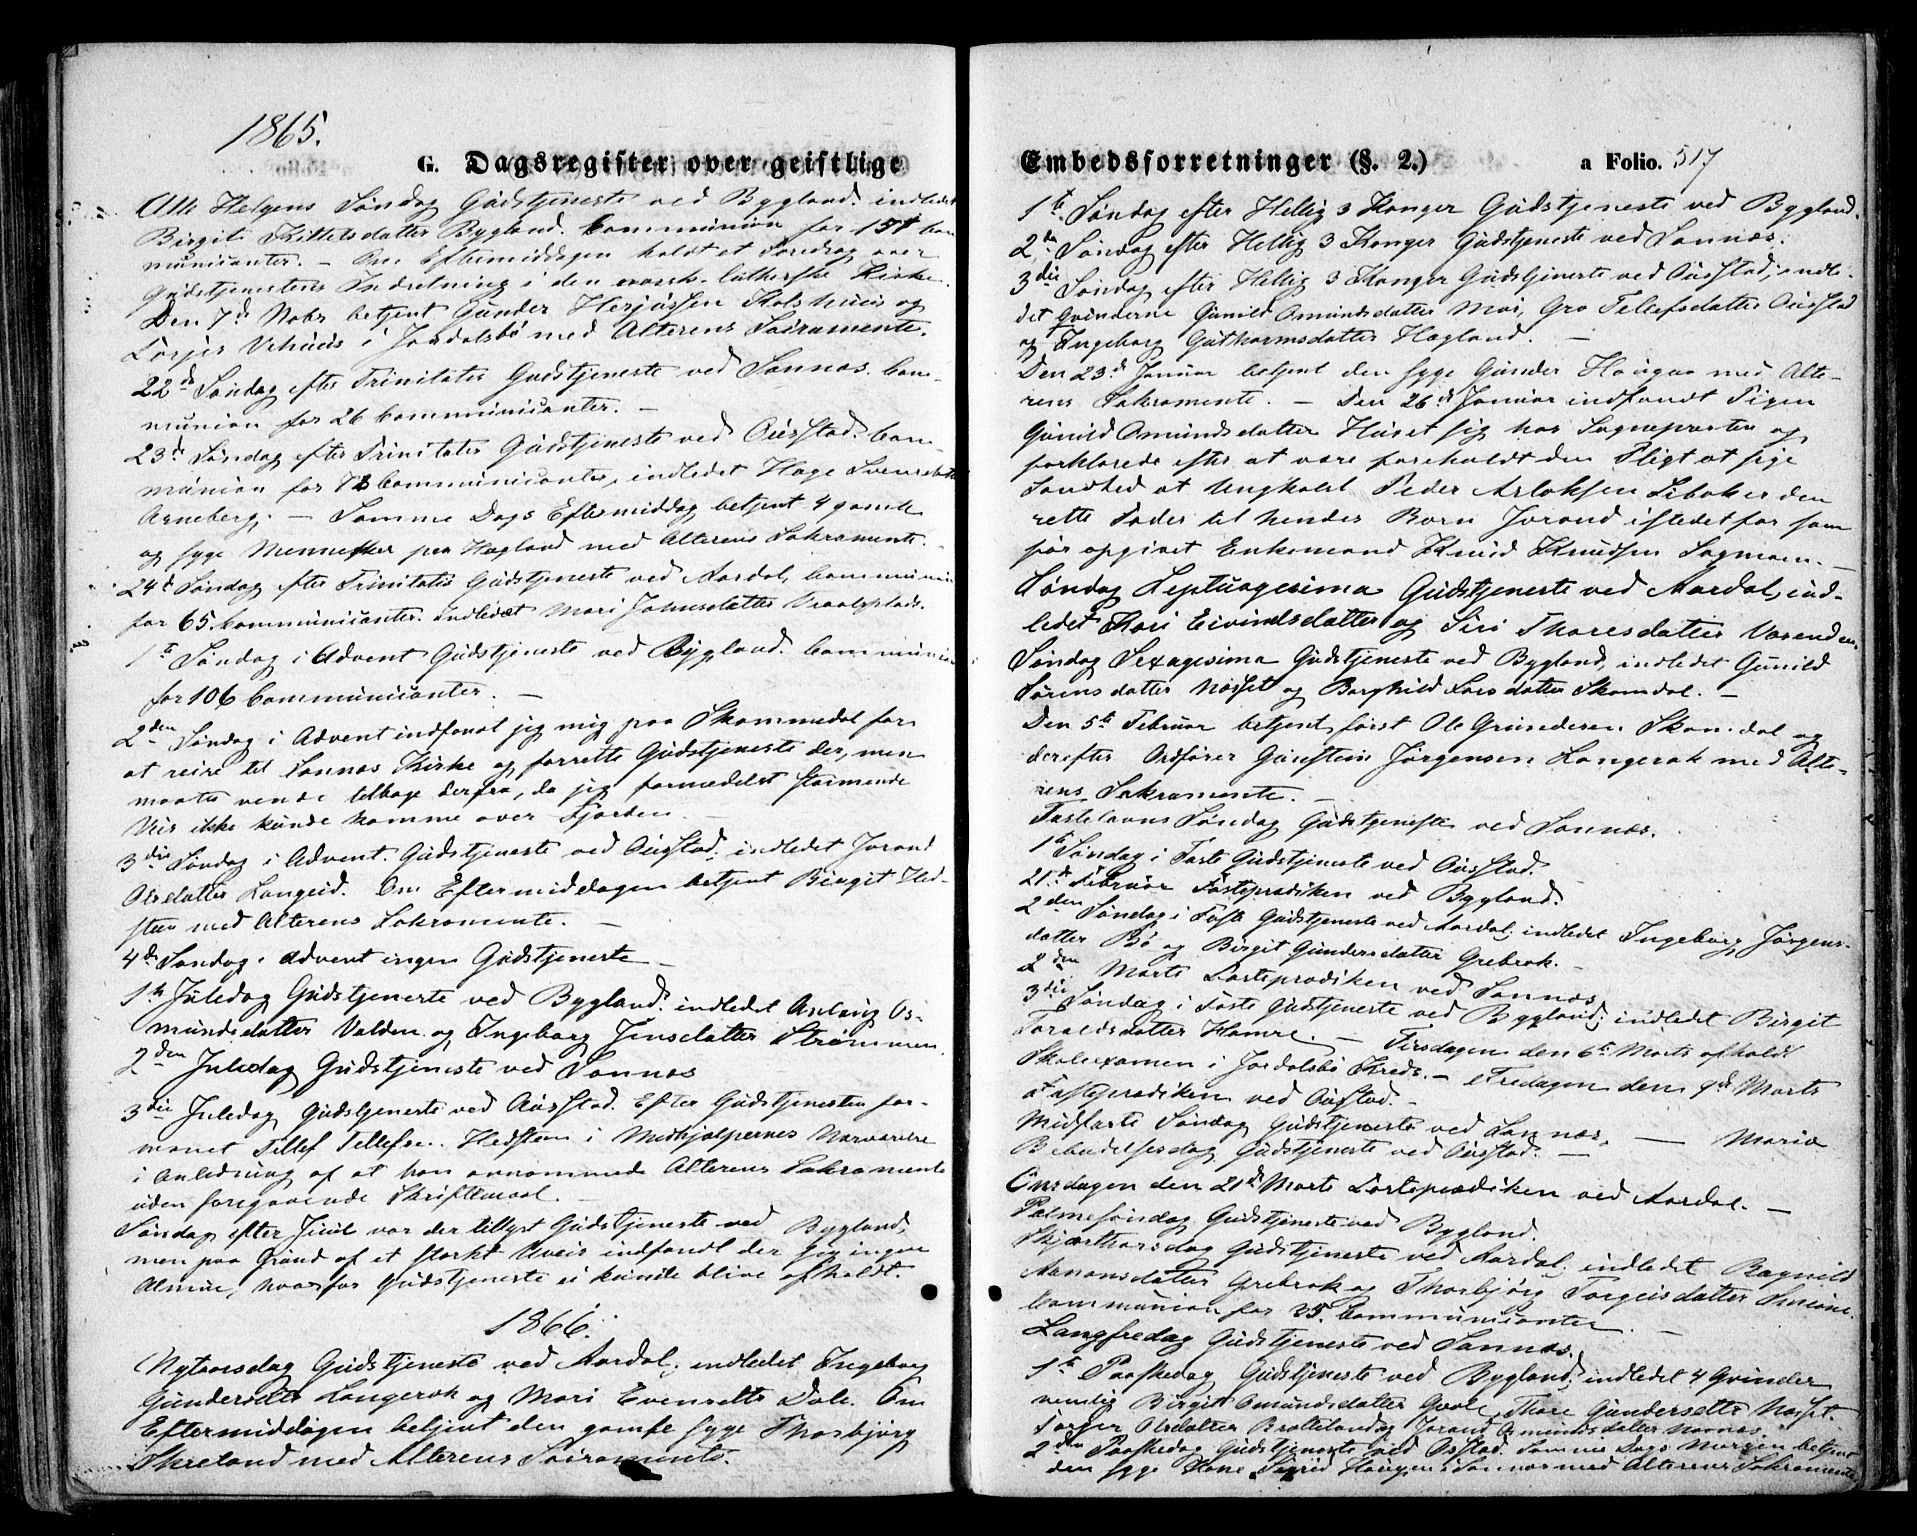 1865.
G. Dagsregister over geistlige
Alle Helgens Søndag Gudstjeneste ved Bygland. indledet
Birgit Kittelsdatter Bygland. Communion for 131 Com
municanter. — Om Eftermiddagen holdt et Foredrag over
Gudstjenestens Indretning i den evansk. lutherske Kirke.
Den 7de Nobr betjent Gunder Herjussen Kolshuus og
Torjer Uhuus i Jordalsbø med Alterens Sacramente.
22de Søndag efter Trinitatis Gudstjeneste ved Sannæs. Com-
munion for 26 Communicanter. —
23de Søndag efter Trinitatis Gudstjeneste ved Oustad. Com-
munion for Communicanter, indledet Hage Svensdatter
Arneberg; — Samme Dags Eftermiddag betjent 4 gamle
og syge Mennesker paa Hagland med Alterens Sakramente.
24de Søndag efter Trinitatis Gudstjeneste ved Aardal. Communion
for 65. Communicanter. Indledet Mari Johnsdatter
1ste Søndag i Advent Gudstjeneste ved Bygland. Communion
for 106 Communicanter. —
2den Søndag i Advent indfandt jeg mig paa Skammedal for
at reise til Sannæs Kirke og forrette Gudstjeneste der, men
maatte vende tilbage derfra, da jeg formedelst stormende
Veir ikke kunde komme over Fjorden. —
3die Søndag i Advent. Gudstjeneste ved Oustad; indledet Jorand
Olsdatter Langeid. Om Eftermiddagen betjent Birgit Hed-
steen med Alterens Sakramente. —
4de Søndag i Advent ingen Gudstjeneste —
1ste Juledag Gudstjeneste ved Bygland. indledet Aslaug Os-
mundsdatter Valden og Ingeborg Jensdatter Strømmen.
2den Juledag Gudstjeneste ved Sannæs
3die Juledag Gudstjeneste ved Oustad. Efter Gudstjenesten for-
manet Tellef Tellefsen Hedsteen i Medhjælpernes Nærværelse
i Anledning af at han annammede Alterens Sakramente
uden foregaaende Skriftemaal. —
Søndag efter Juul var der tillyst Gudstjeneste ved Bygland,
men paa Grund af et stærkt Uveir indfandt der sig ingen
Almue, hvorfor Gudstjeneste ei kunde blive afholdt.
1866.
Nytaarsdag Gudstjeneste ved Aardal; indledet Ingeborg
Gundersdtr Langerak og Mari Evensdtr Dale. Om
Eftermiddagen betjent den gamle syge Thorbjørg
Skreland med Alterens Sacramente.
Embedsforretninger (§. 2.) a Folio. 517
1ste Søndag efter Hellig 3 Konger Gudstjeneste ved Bygland.
2den Søndag efter Hellig 3 Konger Gudstjeneste ved Sannæs.
3die Søndag efter Hellig 3 Konger Gudstjeneste ved Oustad; indle-
det Qvinderne Gunild Omundsdatter Moi, Gro Tellefsdatter Oustad
og Ingeborg Guthormsdatter Hagland. —
Den 23de Januar betjent den syge Gunder Haugaa med Alte-
rens Sakramente. — Den 26de Januar indfandt Pigen
Gunild Omundsdatter Huset sig hos Sognepresten og
forklarede efter at være foreholdt den Pligt at sige
Sandhed at Ungkarl Peder Asloksen Liboker den
rette Fader til hendes Barn Jorand istedetfor som
før opgivet Enkemand Knud Knudsen Sagmoen. —
Søndag Septuagesima Gudstjeneste ved Aardal, ind-
ledet Kari Eivindsdatter og Siri Tharesdatter Varenden.
Søndag Sexagesima Gudstjeneste ved Bygland, indledet Gunild
Sørensdatter Næsset og Borghild Larsdatter Skamdal. —
Den 5te Februar betjent først Ole Gundersen Skamdal og
derefter Ordfører Gunstein Jørgensen Langerak med Alte-
rens Sakramente. —
Fastelavns Søndag Gudstjeneste ved Sannæs.
1ste Søndag i Faste Gudstjeneste ved Oustad.
21de Februar Fasteprædiken ved Bygland.
2den Søndag i Faste Gudstjeneste ved Aardal; indledet Ingeborg Jørgens-
datter Bø og Birgit Gundersdatter Grebrok. —
2den Marts Fasteprædiken ved Sannæs
3die Søndag i Faste Gudstjeneste ved Bygland; indledet Birgit
Taraldsdatter Hamre. — Tirsdagen den 6te Marts afholdt
Skoleexamen i Jordalsbø Kreds. — Fredagen den 9de Marts
Fasteprædiken ved Oustad. —
Midfaste Søndag Gudstjeneste ved Sannæs. — Mariæ
Bebudelsesdag Gudstjeneste ved Oustad. —
Onsdagen den 21de Marts Fasteprædiken ved Aardal. —
Palmesøndag Gudstjeneste ved Bygland.
Skjærthorsdag Gudstjeneste ved Aardal; indledet Ragnild
Aanonsdatter Grebrok og Thorbjørg Torgeisdatter
Communion for 25. Communicanter. —
Langfredag Gudstjeneste ved Sannæs.
1ste Paaskedag Gudstjeneste ved Bygland; indledet 4 Qvinder
nemlig Birgit Omundsdatter Qvale, Thore Gundersdtr Næset
Torger Olsdatter Brottelandog Jorand Osmundsdatter
2den Paaskedag Gudstjeneste ved Oustad. Samme Dags Morgen betjent
den syge Kone Sigrid Haugen i Sannæs med Alterens Sakramente